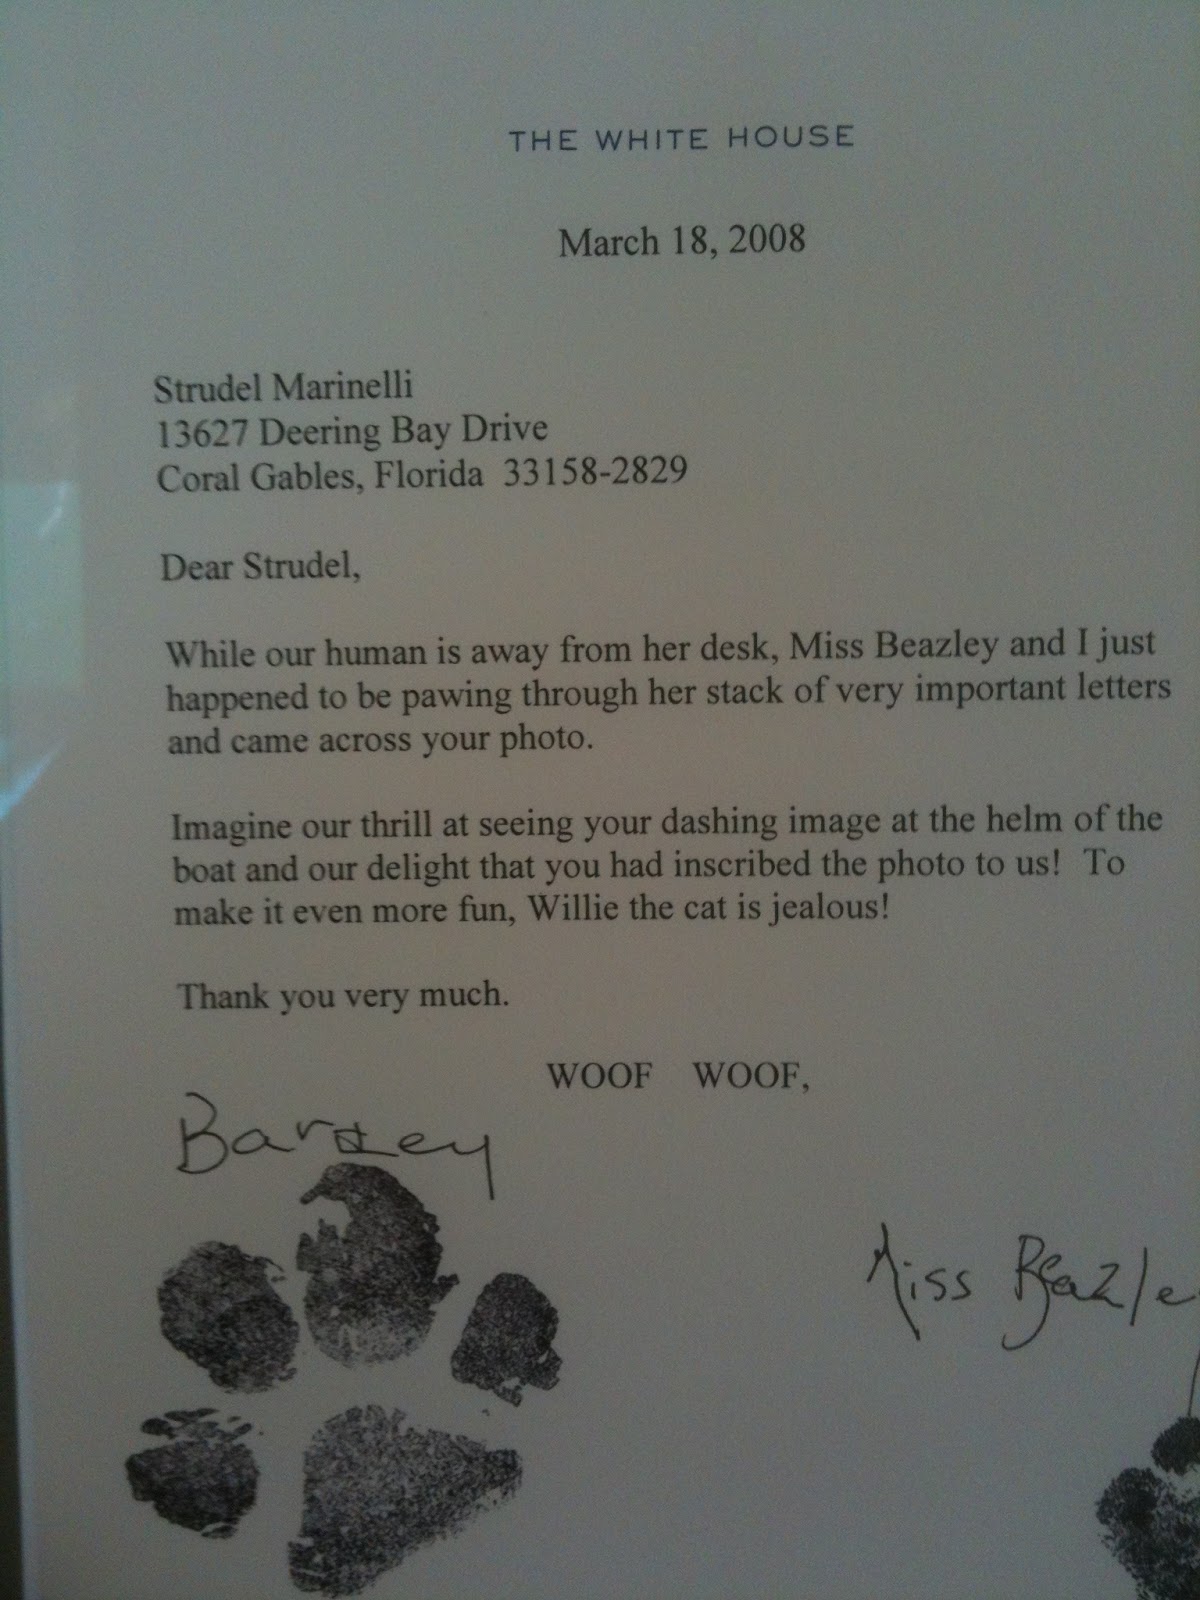 THE WHITE HOUSE
March 18, 2008
Strudel Marinelli
13627 Deering Bay Drive
Coral Gables, Florida 33158-2829
Dear Strudel,
While our human is away from her desk, Miss Beazley and I just
happened to be pawing through her stack of very important letters
and came across your photo.
Imagine our thrill at seeing your dashing image at the helm of the
boat and our delight that you had inscribed the photo to us! To
make it even more fun, Willie the cat is jealous!
Thank you very much.
WOOF WOOF,
Barney
Miss Beazle